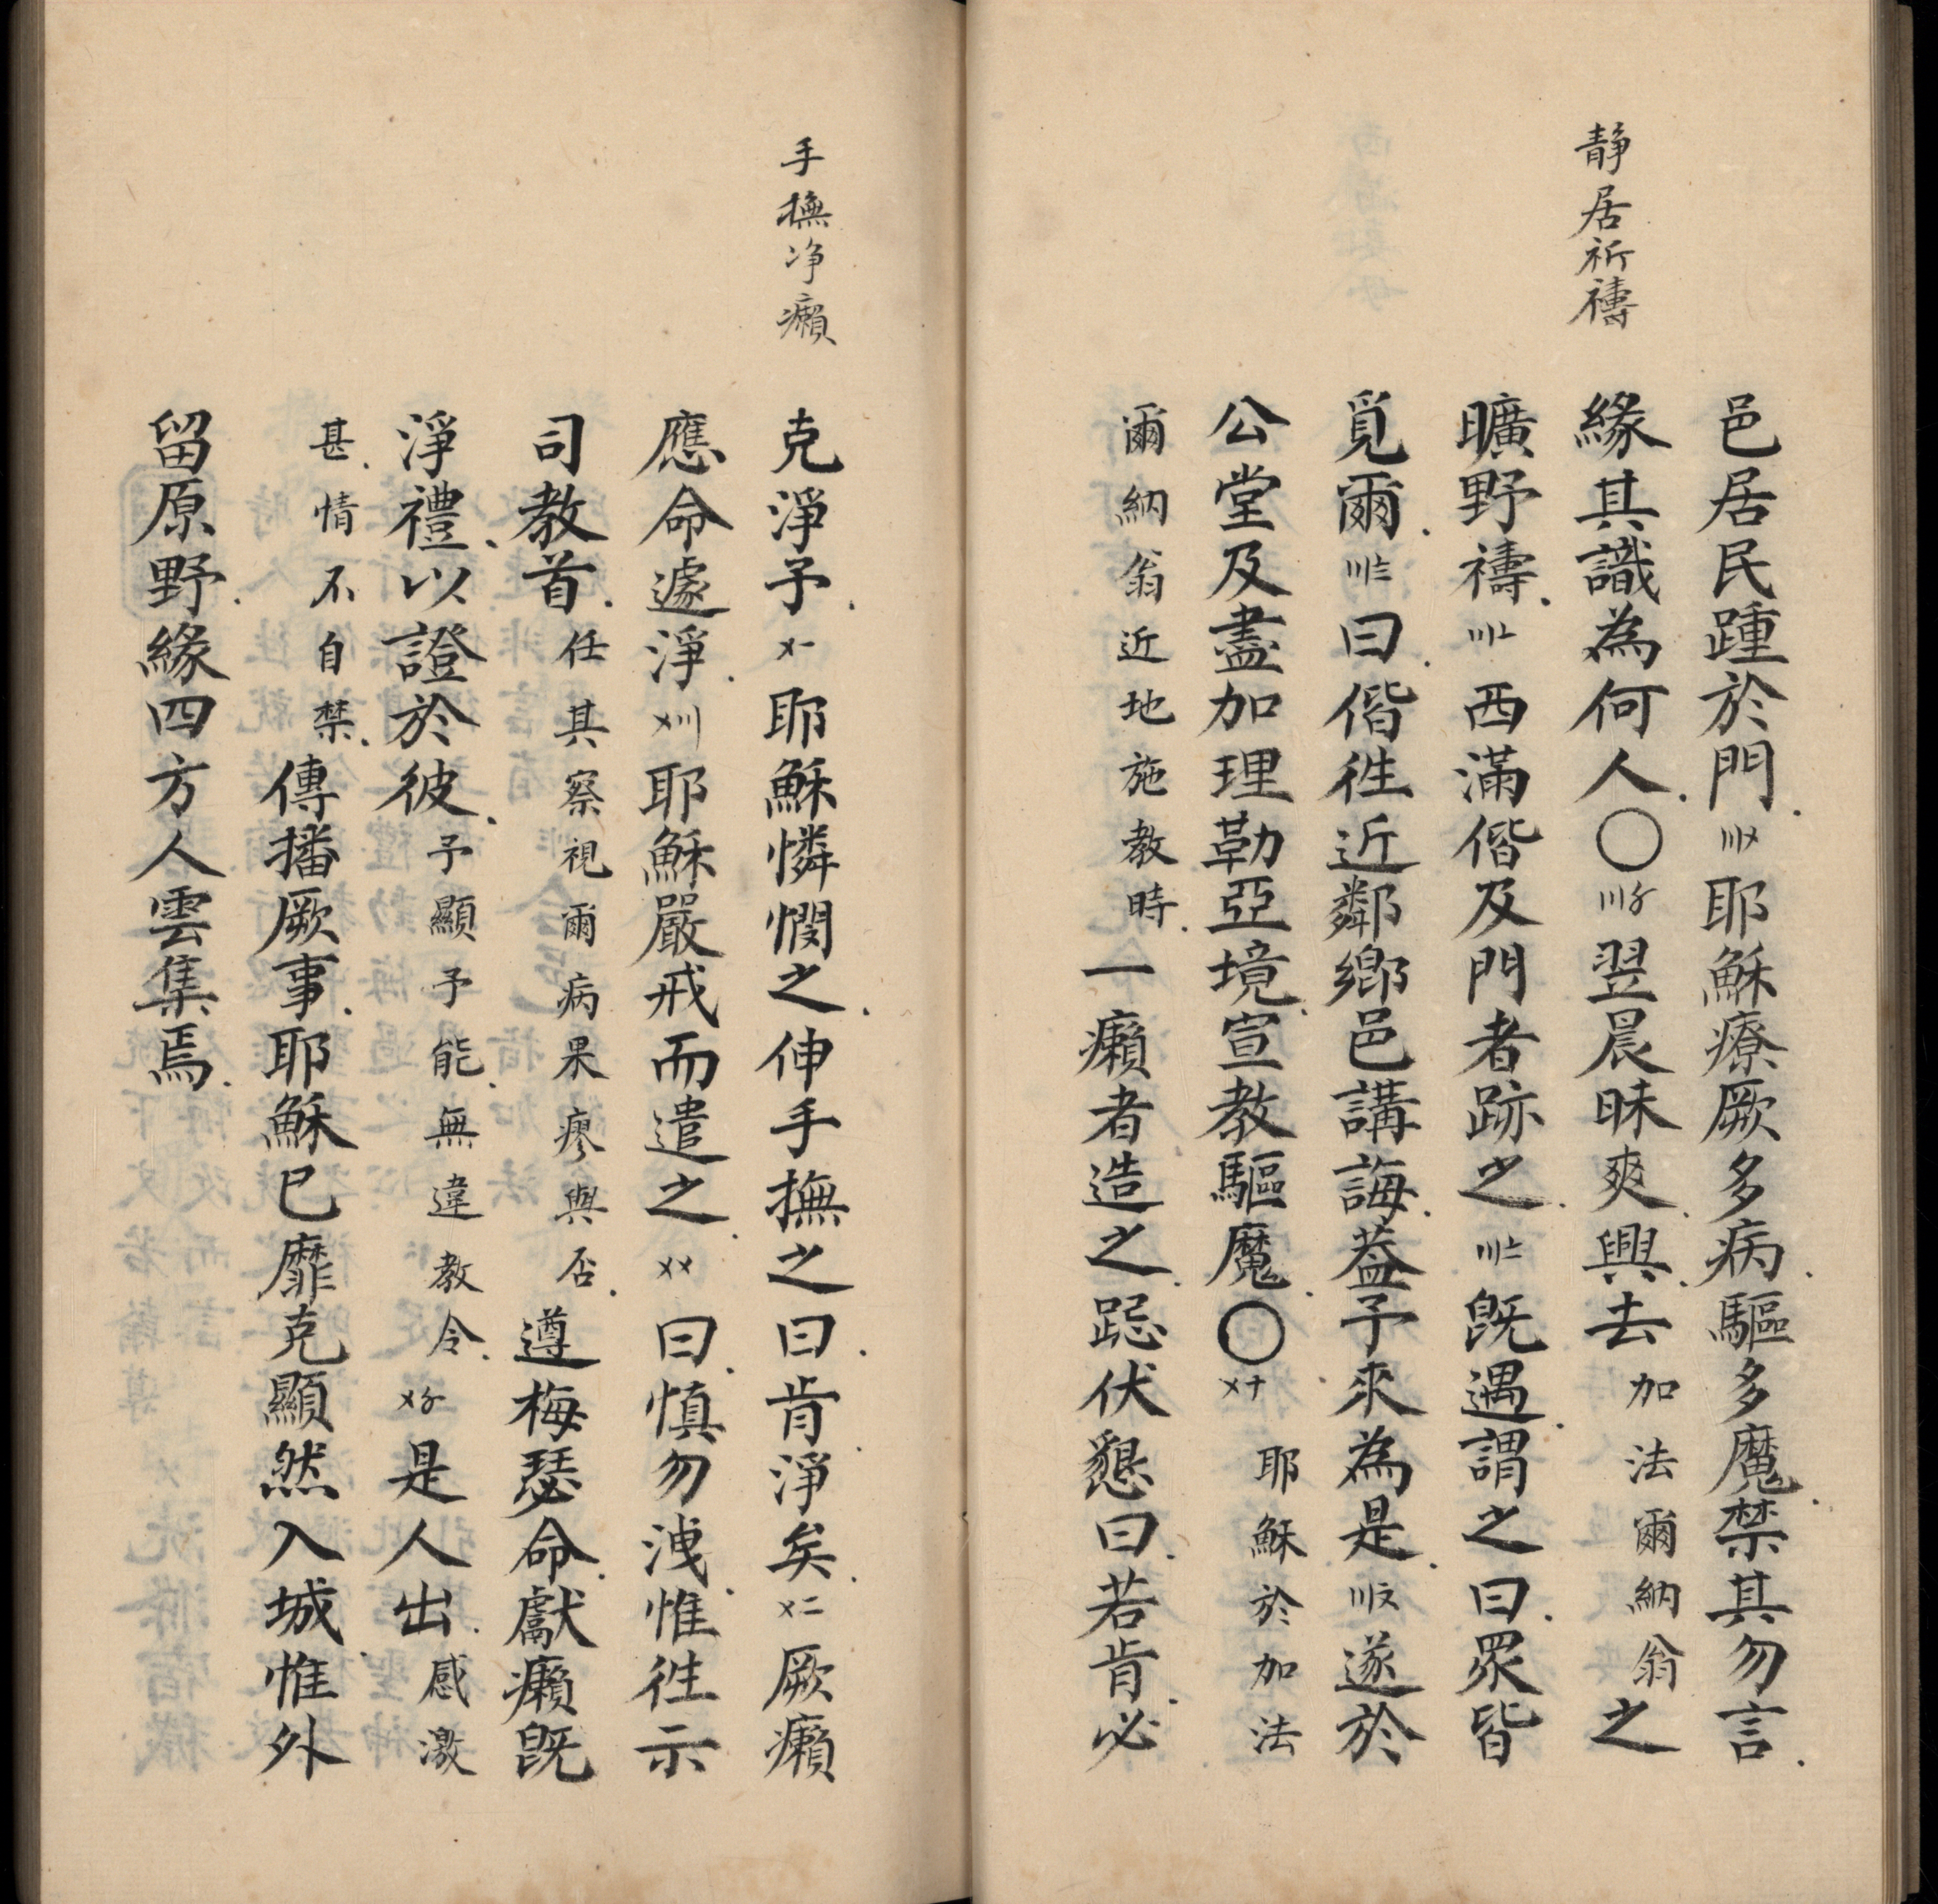 靜居祈禱
邑居民踵於門〣〤耶穌療厥多病驅多魔禁其勿言
緣其識為何人〇〣〥翌晨昧爽興去加法爾納翁之
曠野禱〣〦西滿偕及門者跡之〣〧既遇謂之曰眾皆
覓爾〣〨曰偕徃近鄰鄉邑講誨蓋予來為是〣〩遂於
公堂及盡加理勒亞境宣教驅魔〇〤十耶穌於加法
爾納翁近地施教時一癩者造之跽伏懇曰若肯必
手撫淨癩
克淨予〤一耶穌憐憫之伸手撫之曰肯淨矣〤二厥癩
應命遽淨〤〣耶穌嚴戒而遣之〤〤曰慎勿洩惟徃示
司教首任其察視爾病果瘳與否遵梅瑟命獻癩既
淨禮以證於彼予顯予能無違教令〤〥是人出感激
甚情不自禁傳播厥事耶穌已靡克顯然入城惟外
留原野緣四方人雲集焉